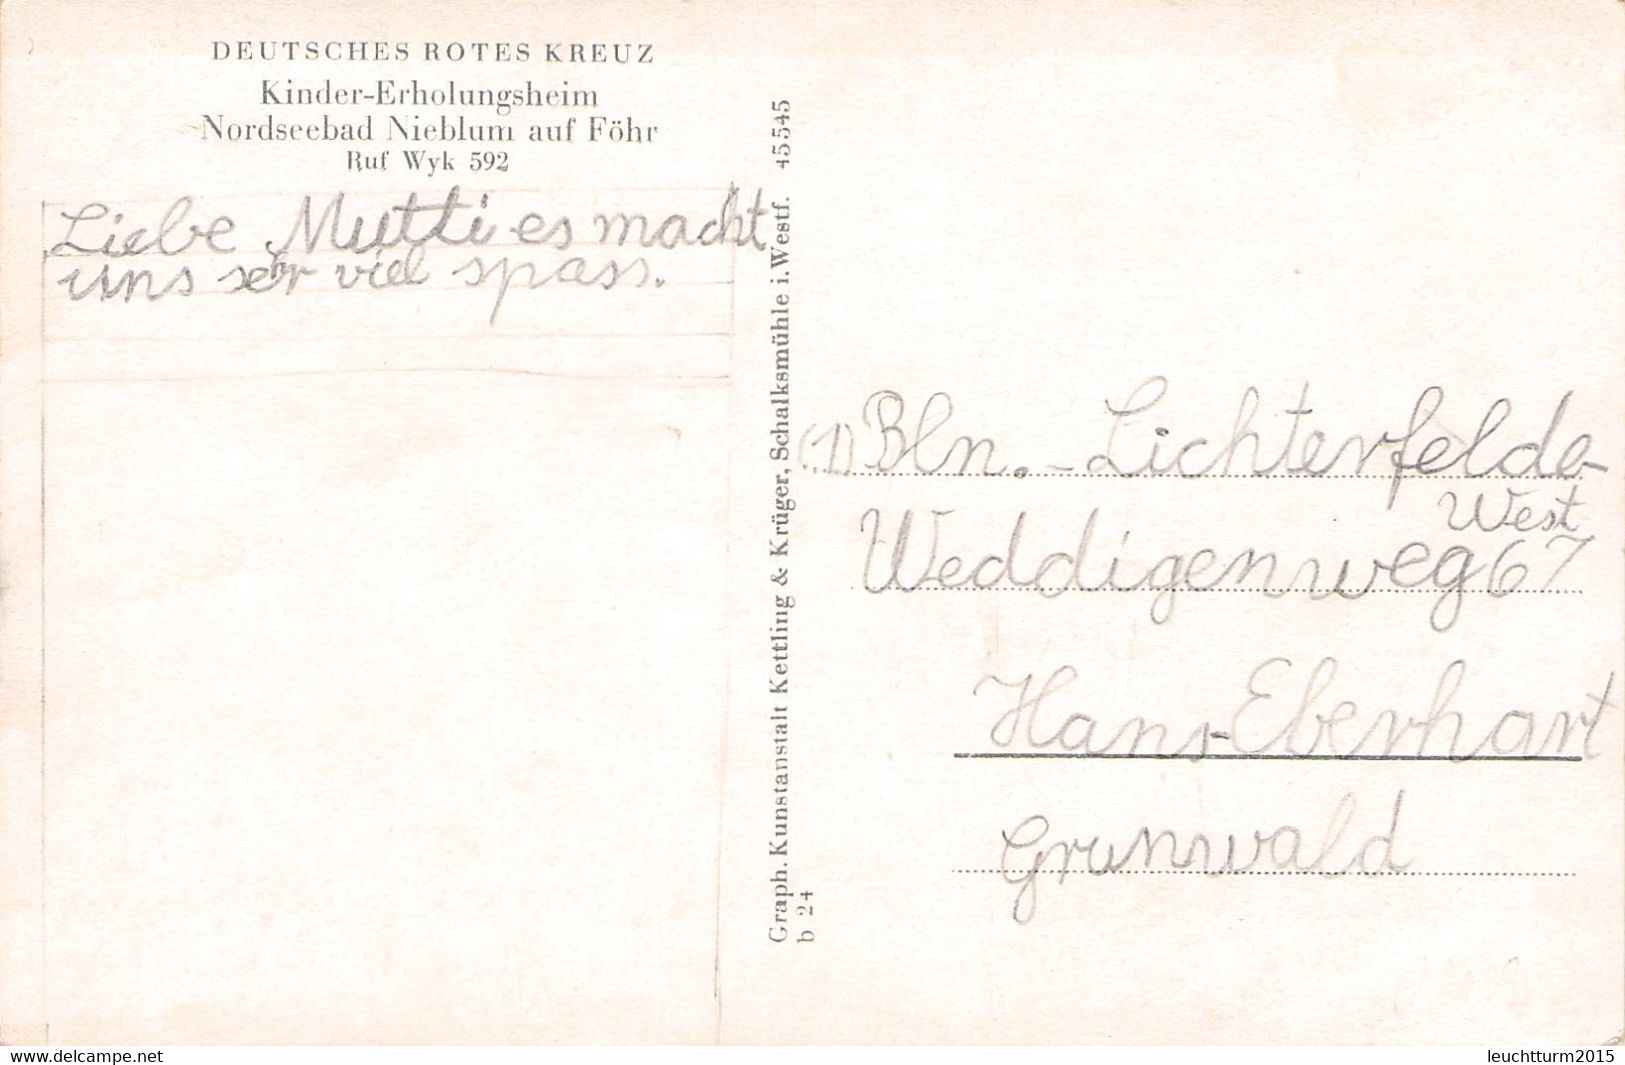 DEUTSCHES ROTES KREUZ
Kinder-Erholungsheim
Nordseebad Nieblum auf Föhr
Ruf Wyk 592
Liebe Mutti es macht
uns ser viel spass.
Graph. Kunstanstalt Kettling & Krüger, Schalksmühle i. Westf. 45545
b 24
(1) Bln.-Lichterfelde-
West
Weddigenweg 67
Hans-Eberhart
Grunwald
www.delcampe.net
leuchtturm2015